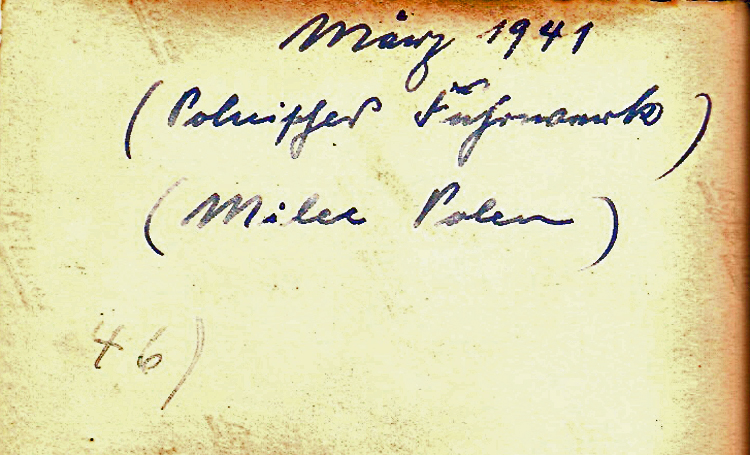 März 1941
(Polnisches Fuhrwerk)
(Milec Polen)
46)